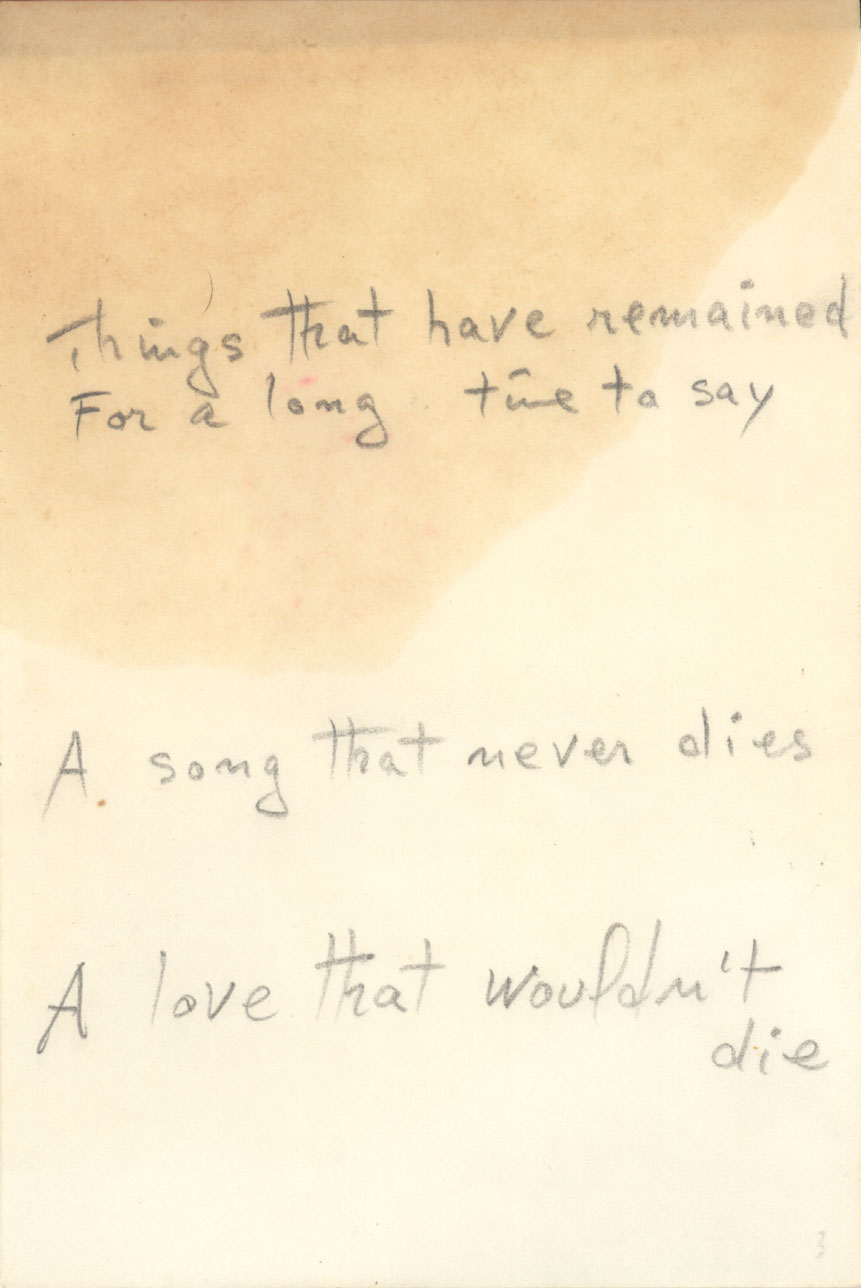 Things that have remained
For a long time to say
A song that never dies
A love that wouldn't
die
3